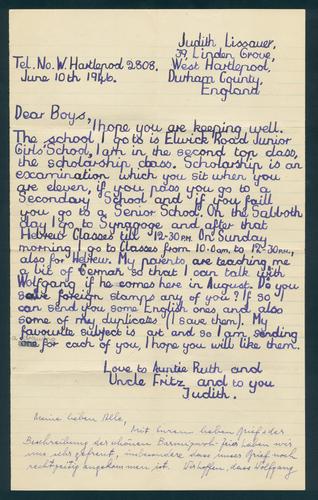 Judith Lissauer,
39, Linden Grove,
Tel. No. W. Hartlepool 2808. West Hartlepool,
June 10th 1946. Durham County,
England
Dear Boys,
I hope you are keeping well.
The school I go to is Elwick Road Junior
Girls' School, I am in the second top class,
the scholarship class. Scholarship is an
examination which you sit when you
are eleven, if you pass you go to a
Secondary School and if you faill
you go to a Senior School. On the Sabboth
day I go to Synagoge and after that
Hebrew Classes till 12-30 P.M. On Sunday
morning I go to Classes from 10-0 a.m. to 12-30 P.M.,
also for Hebrew. My parents are teaching me
a bit of German so that I can talk with
Wolfgang if he comes here in August. Do you
save foreign stamps any of you? If so I
can send you some English ones and also
some of my duplicates (I save them). My
favourite subject is art and so I am sending
one for each of you, I hope you will like them.
Love to Auntie Ruth and
Uncle Fritz and to you
Judith.
Meine lieben Alle,
Mit Eurem lieben Brief & der
Beschreibung der schönen Barmizwoh-feier haben wir
uns sehr gefreut, insbesondere dass unser Brief noch
rechtzeitig angekommen ist. Wir hoffen, dass Wolfgang